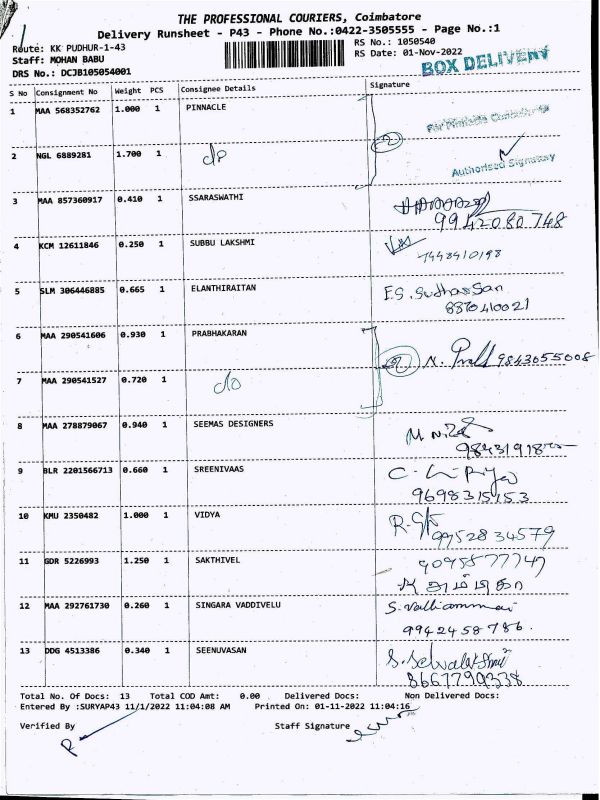 THE PROFESSIONAL COURIERS, Coimbatore
Delivery Runsheet - P43 - Phone No.:0422-3505555 - Page No.:1
Route: KK PUDHUR-1-43 RS No.: 1050540
Staff: MOHAN BABU RS Date: 01-Nov-2022
DRS No.: DCJB105054001 BOX DELIVERY
S No Consignment No Weight PCS Consignee Details Signature
1 MAA 568352762 1.000 1 PINNACLE For Pinnacle
2 NGL 6889281 1.700 1 do
Authorised Signatory
3 MAA 857360917 0.410 1 SSARASWATHI
9942080748
4 KCM 12611846 0.250 1 SUBBU LAKSHMI
7448410198
5 SLM 306446885 0.665 1 ELANTHIRAITAN E.S. Sudharsan
8870410021
6 MAA 290541606 0.930 1 PRABHAKARAN
N. 9843055008
7 MAA 290541527 0.720 1 do
8 MAA 278879067 0.940 1 SEEMAS DESIGNERS
9 BLR 2201566713 0.660 1 SREENIVAAS
9698315153
10 KMU 2350482 1.000 1 VIDYA
9952834579
11 GDR 5226993 1.250 1 SAKTHIVEL
12 MAA 292761730 0.260 1 SINGARA VADDIVELU S. Valliammai
9942458786.
13 DDG 4513386 0.340 1 SEENUVASAN
8667790338
Total No. Of Docs: 13 Total COD Amt: 0.00 Delivered Docs: Non Delivered Docs:
Entered By :SURYAP43 11/1/2022 11:04:08 AM Printed On: 01-11-2022 11:04:16
Verified By Staff Signature